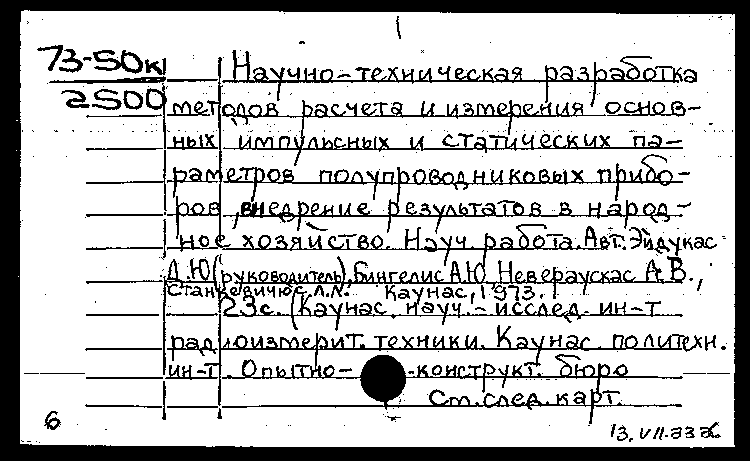 73-50к
2500
Научно-техническая разработка
методов расчета и измерения основ-
ных импульсных и статических па-
раметров полупроводниковых прибо-
ров, внедрение результатов в народ-
ное хозяйство. Науч. работа. Авт: Эйдукас
Д.Ю. (руководитель), Бингелис А.Ю. Невераускас А.В.,
Станкевичюс Л.Л. Каунас, 1973.
23с. (Каунас. науч.-исслед. ин-т
радиоизмерит. техники. Каунас. политехн.
ин-т. Опытно- -конструкт. бюро
См. след. карт.
6
13.VII.73